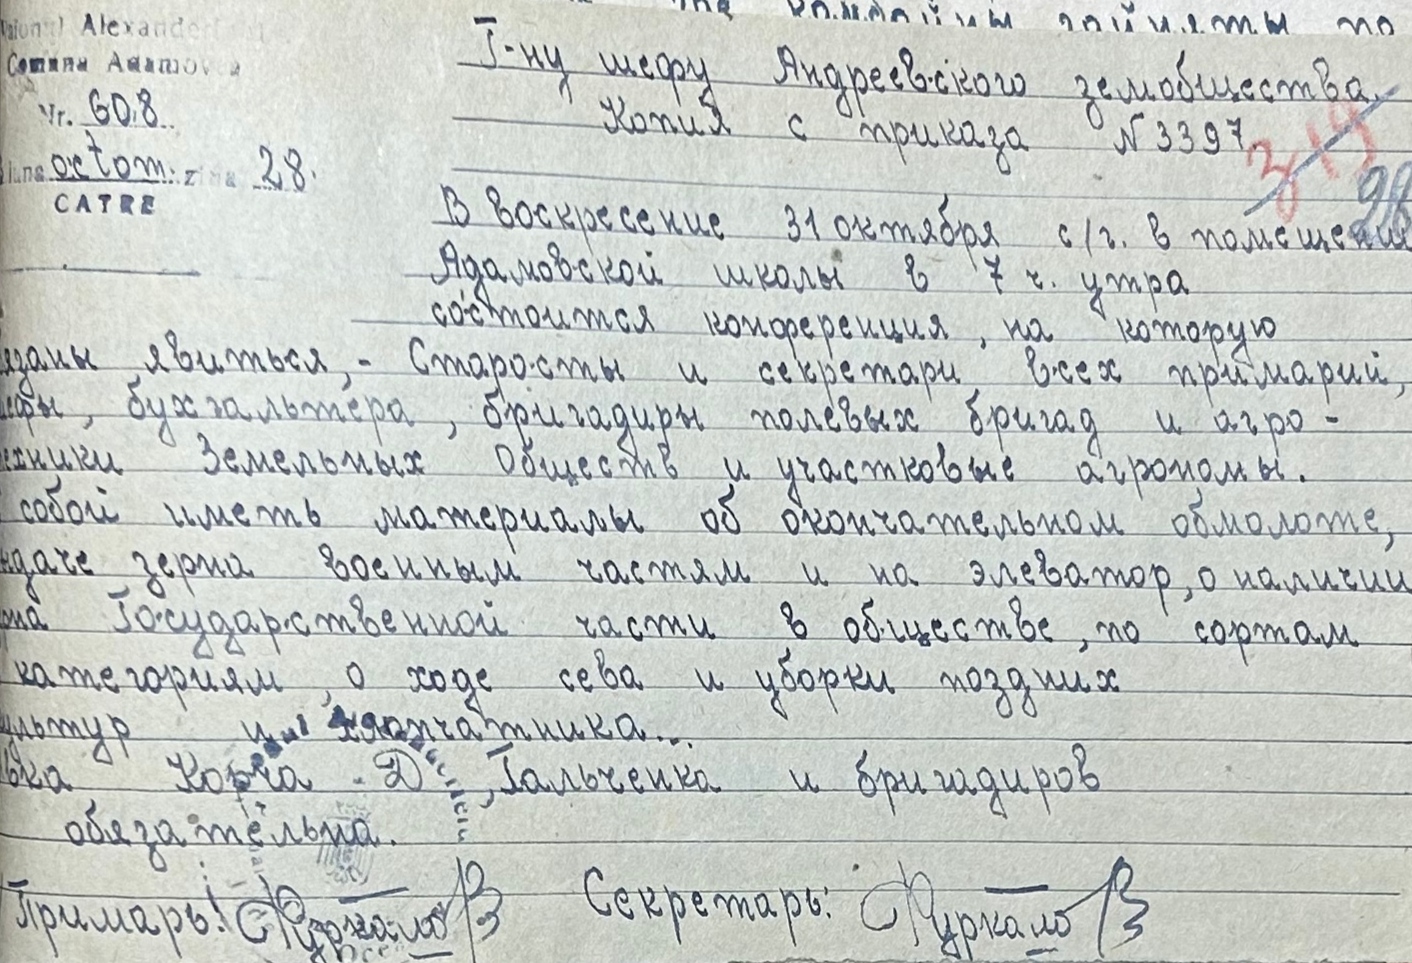 Raionul Alexander
Comuna Adamovca
Nr. 608
Luna octom. ziua 28.
CATRE
Г-ну шефу Андреевского земобщества.
Копия с приказа N 3397.
319
98
В воскресение 31 октября с/г. в помещении
Адамовской школы в 7 ч. утра
состоится конференция, на которую
язаны явиться, - Старосты и секретари всех примарий,
ефы, бухгальтера, бригадиры полевых бригад и агро -
ехники Земельных Обществ и участковые агрономы.
собой иметь материалы об окончательном обмолоте,
даче зерна военным частям и на элеватор, о наличии
на Государственной части в обществе, по сортам
категориям, о ходе сева и уборки поздних
ультур и хлопчатника...
вка Корча Д, Гальченка и бригадиров
обязательна.
Примарь: Чуркало Секретарь: Чуркало